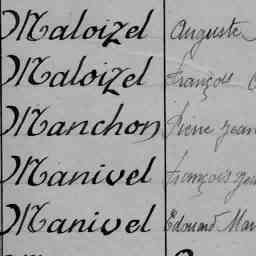 Maloizel Auguste
Maloizel François
Manchon Pierre Jean
Manivel François Jea
Manivel Edouard Mar